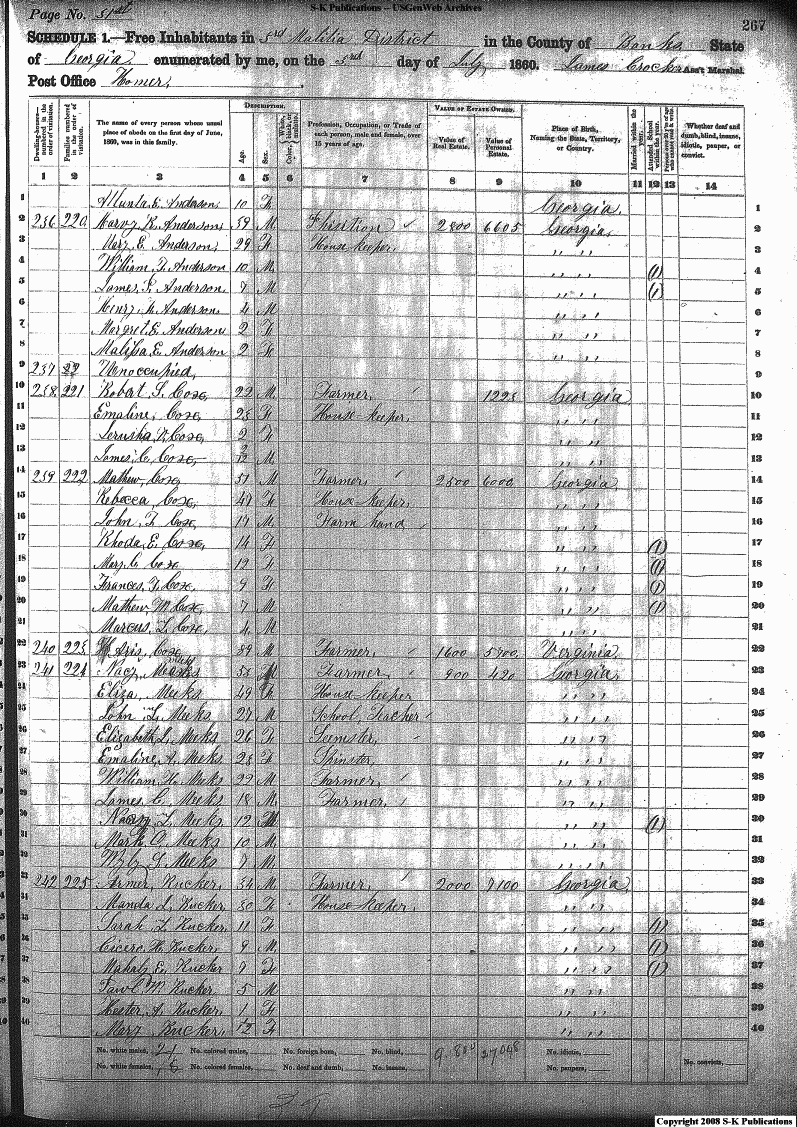 S-K Publications – USGenWeb Archives
Page No. 51st
267
SCHEDULE 1.—Free Inhabitants in 53rd Militia District in the County of Banks State
of Georgia enumerated by me, on the 53rd day of July 1860. James Crocker Ass't Marshal.
Post Office Homer,
Dwelling-houses—numbered in the order of visitation.
Families numbered in the order of visitation.
The name of every person whose usual place of abode on the first day of June, 1860, was in this family.
DESCRIPTION.
Age.
Sex.
Color,
Profession, Occupation, or Trade of each person, male and female, over 15 years of age.
VALUE OF ESTATE OWNED.
Value of Real Estate.
Value of Personal Estate.
Place of Birth, Naming the State, Territory, or Country.
Married within the year.
Attended School within the year.
Whether deaf and dumb, blind, insane, idiotic, pauper, or convict.
1 2 3 4 5 6 7 8 9 10 11 12 13 14
1 E. Anderson 10 F Georgia 1
2 236 220 Harvy R. Anderson 39 M 2800 6605 Georgia, 2
3 E. Anderson, 29 F House keeper, " " 3
4 William Anderson 10 M " " (1) 4
5 James Anderson 7 M " " (1) 5
6 Henry Anderson 4 M " " 6
7 Margret E. Anderson 2 F " " 7
8 Malissa E. Anderson 2 F " " 8
9 237 Unoccupied, 9
10 238 221 Robert S. Cox, 22 M Farmer, 1225 Georgia 10
11 Emaline, Cox, 25 F House keeper, " " 11
12 Cox, 2 F " " 12
13 James C. Cox, /12 M " " 13
14 239 222 Mathew, Cox, 51 M Farmer, 2500 6000 Georgia 14
15 Rebecca, Cox, 47 F House keeper, " " 15
16 John Cox, 17 M Farm hand " " 16
17 Rhoda, E. Cox, 14 F " " (1) 17
18 Mary C. Cox 12 F " " (1) 18
19 Frances, Cox, 9 F " " (1) 19
20 Mathew M. Cox, 7 M " " (1) 20
21 Marcus, L. Cox, 4 M " " 21
22 240 223 Cox, 89 M Farmer, 1600 5900 Verginia, 22
23 241 224 Nacy, Meeks 53 M Farmer, 900 420 Georgia, 23
24 Eliza, Meeks 49 F House keeper " " 24
25 John L. Meeks 27 M School, Teacher " " 25
26 Elizabeth L. Meeks 26 F " " 26
27 Emaline, A. Meeks 23 F Spinster, " " 27
28 William H. Meeks 22 M Farmer, " " 28
29 James C. Meeks 18 M Farmer, " " 29
30 Nacy L. Meeks 12 M " " (1) 30
31 Mark O. Meeks 10 M " " 31
32 Meeks 7 M " " 32
33 242 225 Rucker, 34 M Farmer, 2000 7100 Georgia, 33
34 Manda L. Rucker 30 F House keeper, " " 34
35 Sarah Rucker 11 F " " (1) 35
36 Cicero H. Rucker, 9 M " " (1) 36
37 Mahaly E. Rucker 9 F " " (1) 37
38 M Rucker, 5 M " " 38
39 Hester A. Rucker, 1 F " " 39
40 Mary Rucker, /12 F " " 40
No. white males, 21 No. colored males, No. foreign born, No. blind, No. idiotic,
No. white females, 18 No. colored females, No. deaf and dumb, No. insane, No. paupers, No. convicts,
Copyright 2008 S-K Publications